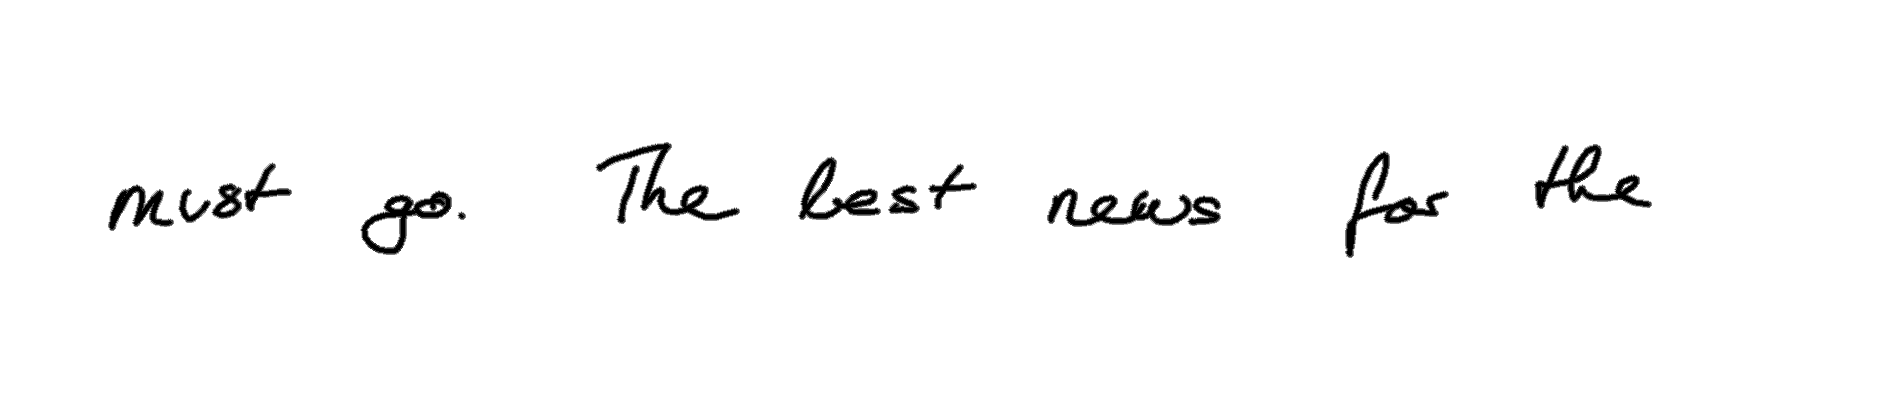 must go. The best news for the